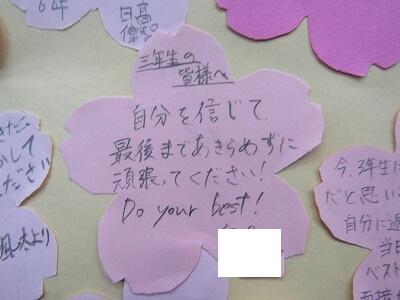 6年
三年生の
皆様へ
自分を信じて
最後まであきらめずに
頑張ってください!
Do your best!
して
ださい
より
今、3年生に
だと思い
自分に
当日
ベスト
面接